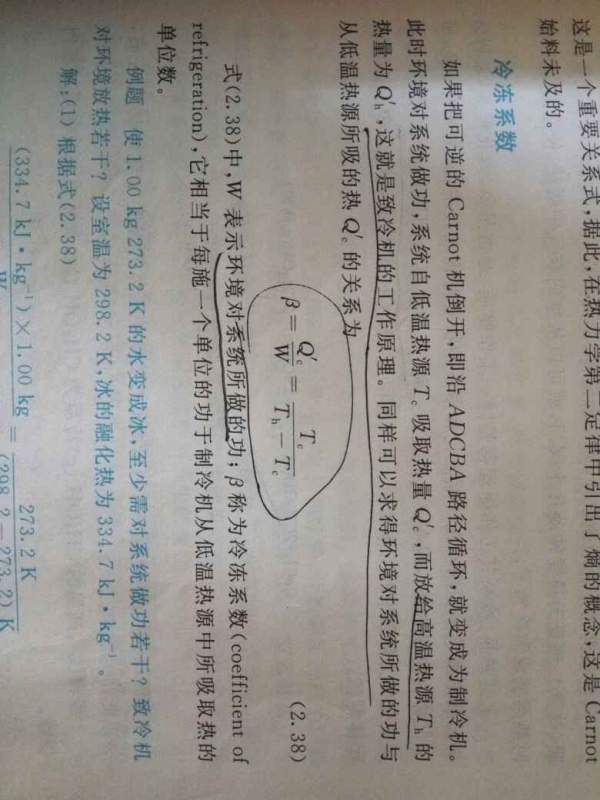 这是一个重要关系式，据此，在热力学第二定律中引出了熵的概念，这是 Carnot
始料未及的。
冷冻系数
如果把可逆的 Carnot 机倒开，即沿 ADCBA 路径循环，就变成为制冷机。
此时环境对系统做功，系统自低温热源 T_c 吸取热量 Q′_c，而放给高温热源 T_h 的
热量为 Q′_h，这就是致冷机的工作原理。同样可以求得环境对系统所做的功与
从低温热源所吸的热 Q′_c 的关系为
β = Q′_c / W = T_c / (T_h − T_c) (2.38)
式(2.38)中，W 表示环境对系统所做的功；β 称为冷冻系数(coefficient of
refrigeration)，它相当于每施一个单位的功于制冷机从低温热源中所吸取热的
单位数。
例题 使 1.00 kg 273.2 K 的水变成冰，至少需对系统做功若干？致冷机
对环境放热若干？设室温为 298.2 K，冰的融化热为 334.7 kJ·kg⁻¹。
解：(1) 根据式(2.38)
(334.7 kJ·kg⁻¹)×1.00 kg / W = 273.2 K / (298.2−273.2) K